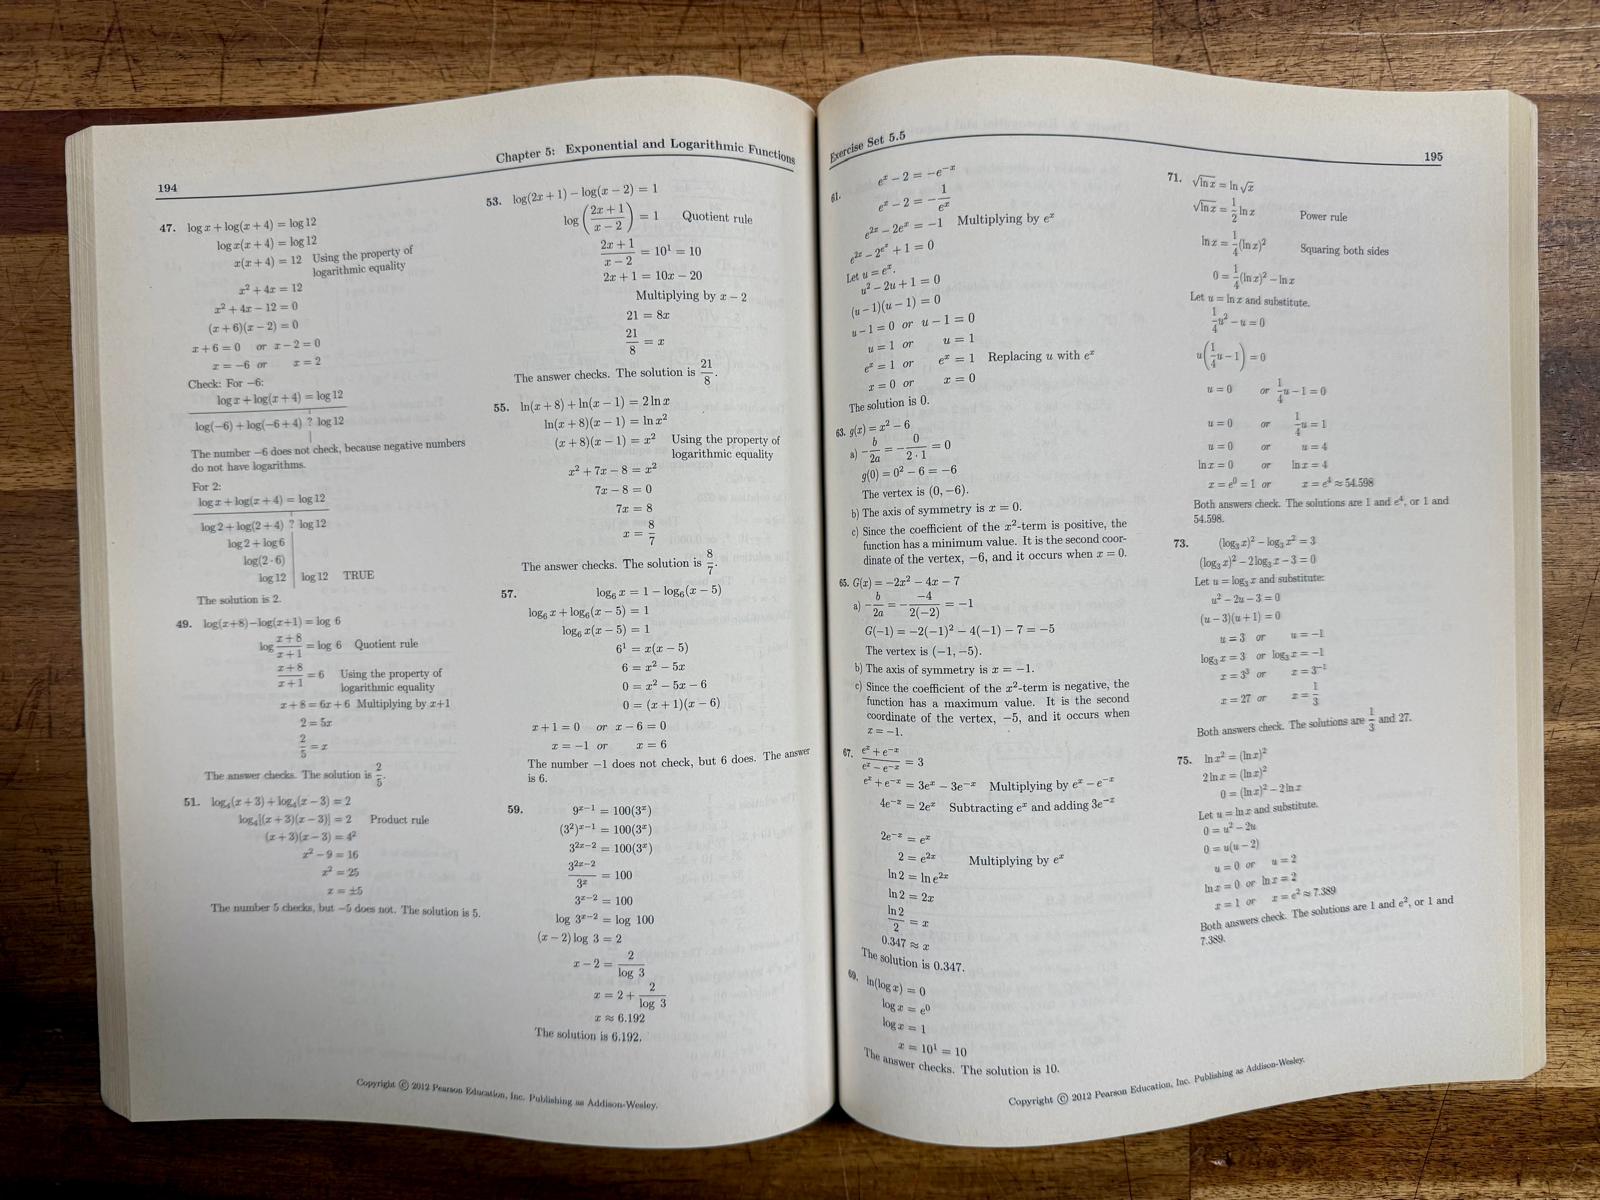 194
Chapter 5: Exponential and Logarithmic Functions
47. log x + log(x + 4) = log 12
log x(x + 4) = log 12
x(x + 4) = 12 Using the property of
logarithmic equality
x² + 4x = 12
x² + 4x − 12 = 0
(x + 6)(x − 2) = 0
x + 6 = 0 or x − 2 = 0
x = −6 or x = 2
Check: For −6:
log x + log(x + 4) = log 12
log(−6) + log(−6 + 4) ? log 12
The number −6 does not check, because negative numbers
do not have logarithms.
For 2:
log x + log(x + 4) = log 12
log 2 + log(2 + 4) ? log 12
log 2 + log 6
log(2 · 6)
log 12 | log 12 TRUE
The solution is 2.
49. log(x+8)−log(x+1) = log 6
log (x + 8)/(x + 1) = log 6 Quotient rule
(x + 8)/(x + 1) = 6 Using the property of
logarithmic equality
x + 8 = 6x + 6 Multiplying by x+1
2 = 5x
2/5 = x
The answer checks. The solution is 2/5.
51. log₄(x + 3) + log₄(x − 3) = 2
log₄[(x + 3)(x − 3)] = 2 Product rule
(x + 3)(x − 3) = 4²
x² − 9 = 16
x² = 25
x = ±5
The number 5 checks, but −5 does not. The solution is 5.
53. log(2x + 1) − log(x − 2) = 1
log((2x + 1)/(x − 2)) = 1 Quotient rule
(2x + 1)/(x − 2) = 10¹ = 10
2x + 1 = 10x − 20
Multiplying by x − 2
21 = 8x
21/8 = x
The answer checks. The solution is 21/8.
55. ln(x + 8) + ln(x − 1) = 2 ln x
ln(x + 8)(x − 1) = ln x²
(x + 8)(x − 1) = x² Using the property of
logarithmic equality
x² + 7x − 8 = x²
7x − 8 = 0
7x = 8
x = 8/7
The answer checks. The solution is 8/7.
57. log₆ x = 1 − log₆(x − 5)
log₆ x + log₆(x − 5) = 1
log₆ x(x − 5) = 1
6¹ = x(x − 5)
6 = x² − 5x
0 = x² − 5x − 6
0 = (x + 1)(x − 6)
x + 1 = 0 or x − 6 = 0
x = −1 or x = 6
The number −1 does not check, but 6 does. The answer
is 6.
59. 9ˣ⁻¹ = 100(3ˣ)
(3²)ˣ⁻¹ = 100(3ˣ)
3²ˣ⁻² = 100(3ˣ)
3²ˣ⁻²/3ˣ = 100
3ˣ⁻² = 100
log 3ˣ⁻² = log 100
(x − 2) log 3 = 2
x − 2 = 2/log 3
x = 2 + 2/log 3
x ≈ 6.192
The solution is 6.192.
Copyright © 2012 Pearson Education, Inc. Publishing as Addison-Wesley.
Exercise Set 5.5
195
61. eˣ − 2 = −e⁻ˣ
eˣ − 2 = −1/eˣ
e²ˣ − 2eˣ = −1 Multiplying by eˣ
e²ˣ − 2eˣ + 1 = 0
Let u = eˣ.
u² − 2u + 1 = 0
(u − 1)(u − 1) = 0
u − 1 = 0 or u − 1 = 0
u = 1 or u = 1
eˣ = 1 or eˣ = 1 Replacing u with eˣ
x = 0 or x = 0
The solution is 0.
63. g(x) = x² − 6
a) −b/2a = −0/(2 · 1) = 0
g(0) = 0² − 6 = −6
The vertex is (0, −6).
b) The axis of symmetry is x = 0.
c) Since the coefficient of the x²-term is positive, the
function has a minimum value. It is the second coor-
dinate of the vertex, −6, and it occurs when x = 0.
65. G(x) = −2x² − 4x − 7
a) −b/2a = −(−4)/(2(−2)) = −1
G(−1) = −2(−1)² − 4(−1) − 7 = −5
The vertex is (−1, −5).
b) The axis of symmetry is x = −1.
c) Since the coefficient of the x²-term is negative, the
function has a maximum value. It is the second
coordinate of the vertex, −5, and it occurs when
x = −1.
67. (eˣ + e⁻ˣ)/(eˣ − e⁻ˣ) = 3
eˣ + e⁻ˣ = 3eˣ − 3e⁻ˣ Multiplying by eˣ − e⁻ˣ
4e⁻ˣ = 2eˣ Subtracting eˣ and adding 3e⁻ˣ
2e⁻ˣ = eˣ
2 = e²ˣ Multiplying by eˣ
ln 2 = ln e²ˣ
ln 2 = 2x
ln 2/2 = x
0.347 ≈ x
The solution is 0.347.
69. ln(log x) = 0
log x = e⁰
log x = 1
x = 10¹ = 10
The answer checks. The solution is 10.
71. √(ln x) = ln √x
√(ln x) = 1/2 ln x Power rule
ln x = 1/4 (ln x)² Squaring both sides
0 = 1/4 (ln x)² − ln x
Let u = ln x and substitute.
1/4 u² − u = 0
u(1/4 u − 1) = 0
u = 0 or 1/4 u − 1 = 0
u = 0 or 1/4 u = 1
u = 0 or u = 4
ln x = 0 or ln x = 4
x = e⁰ = 1 or x = e⁴ ≈ 54.598
Both answers check. The solutions are 1 and e⁴, or 1 and
54.598.
73. (log₃ x)² − log₃ x² = 3
(log₃ x)² − 2 log₃ x − 3 = 0
Let u = log₃ x and substitute:
u² − 2u − 3 = 0
(u − 3)(u + 1) = 0
u = 3 or u = −1
log₃ x = 3 or log₃ x = −1
x = 3³ or x = 3⁻¹
x = 27 or x = 1/3
Both answers check. The solutions are 1/3 and 27.
75. ln x² = (ln x)²
2 ln x = (ln x)²
0 = (ln x)² − 2 ln x
Let u = ln x and substitute.
0 = u² − 2u
0 = u(u − 2)
u = 0 or u = 2
ln x = 0 or ln x = 2
x = 1 or x = e² ≈ 7.389
Both answers check. The solutions are 1 and e², or 1 and
7.389.
Copyright © 2012 Pearson Education, Inc. Publishing as Addison-Wesley.